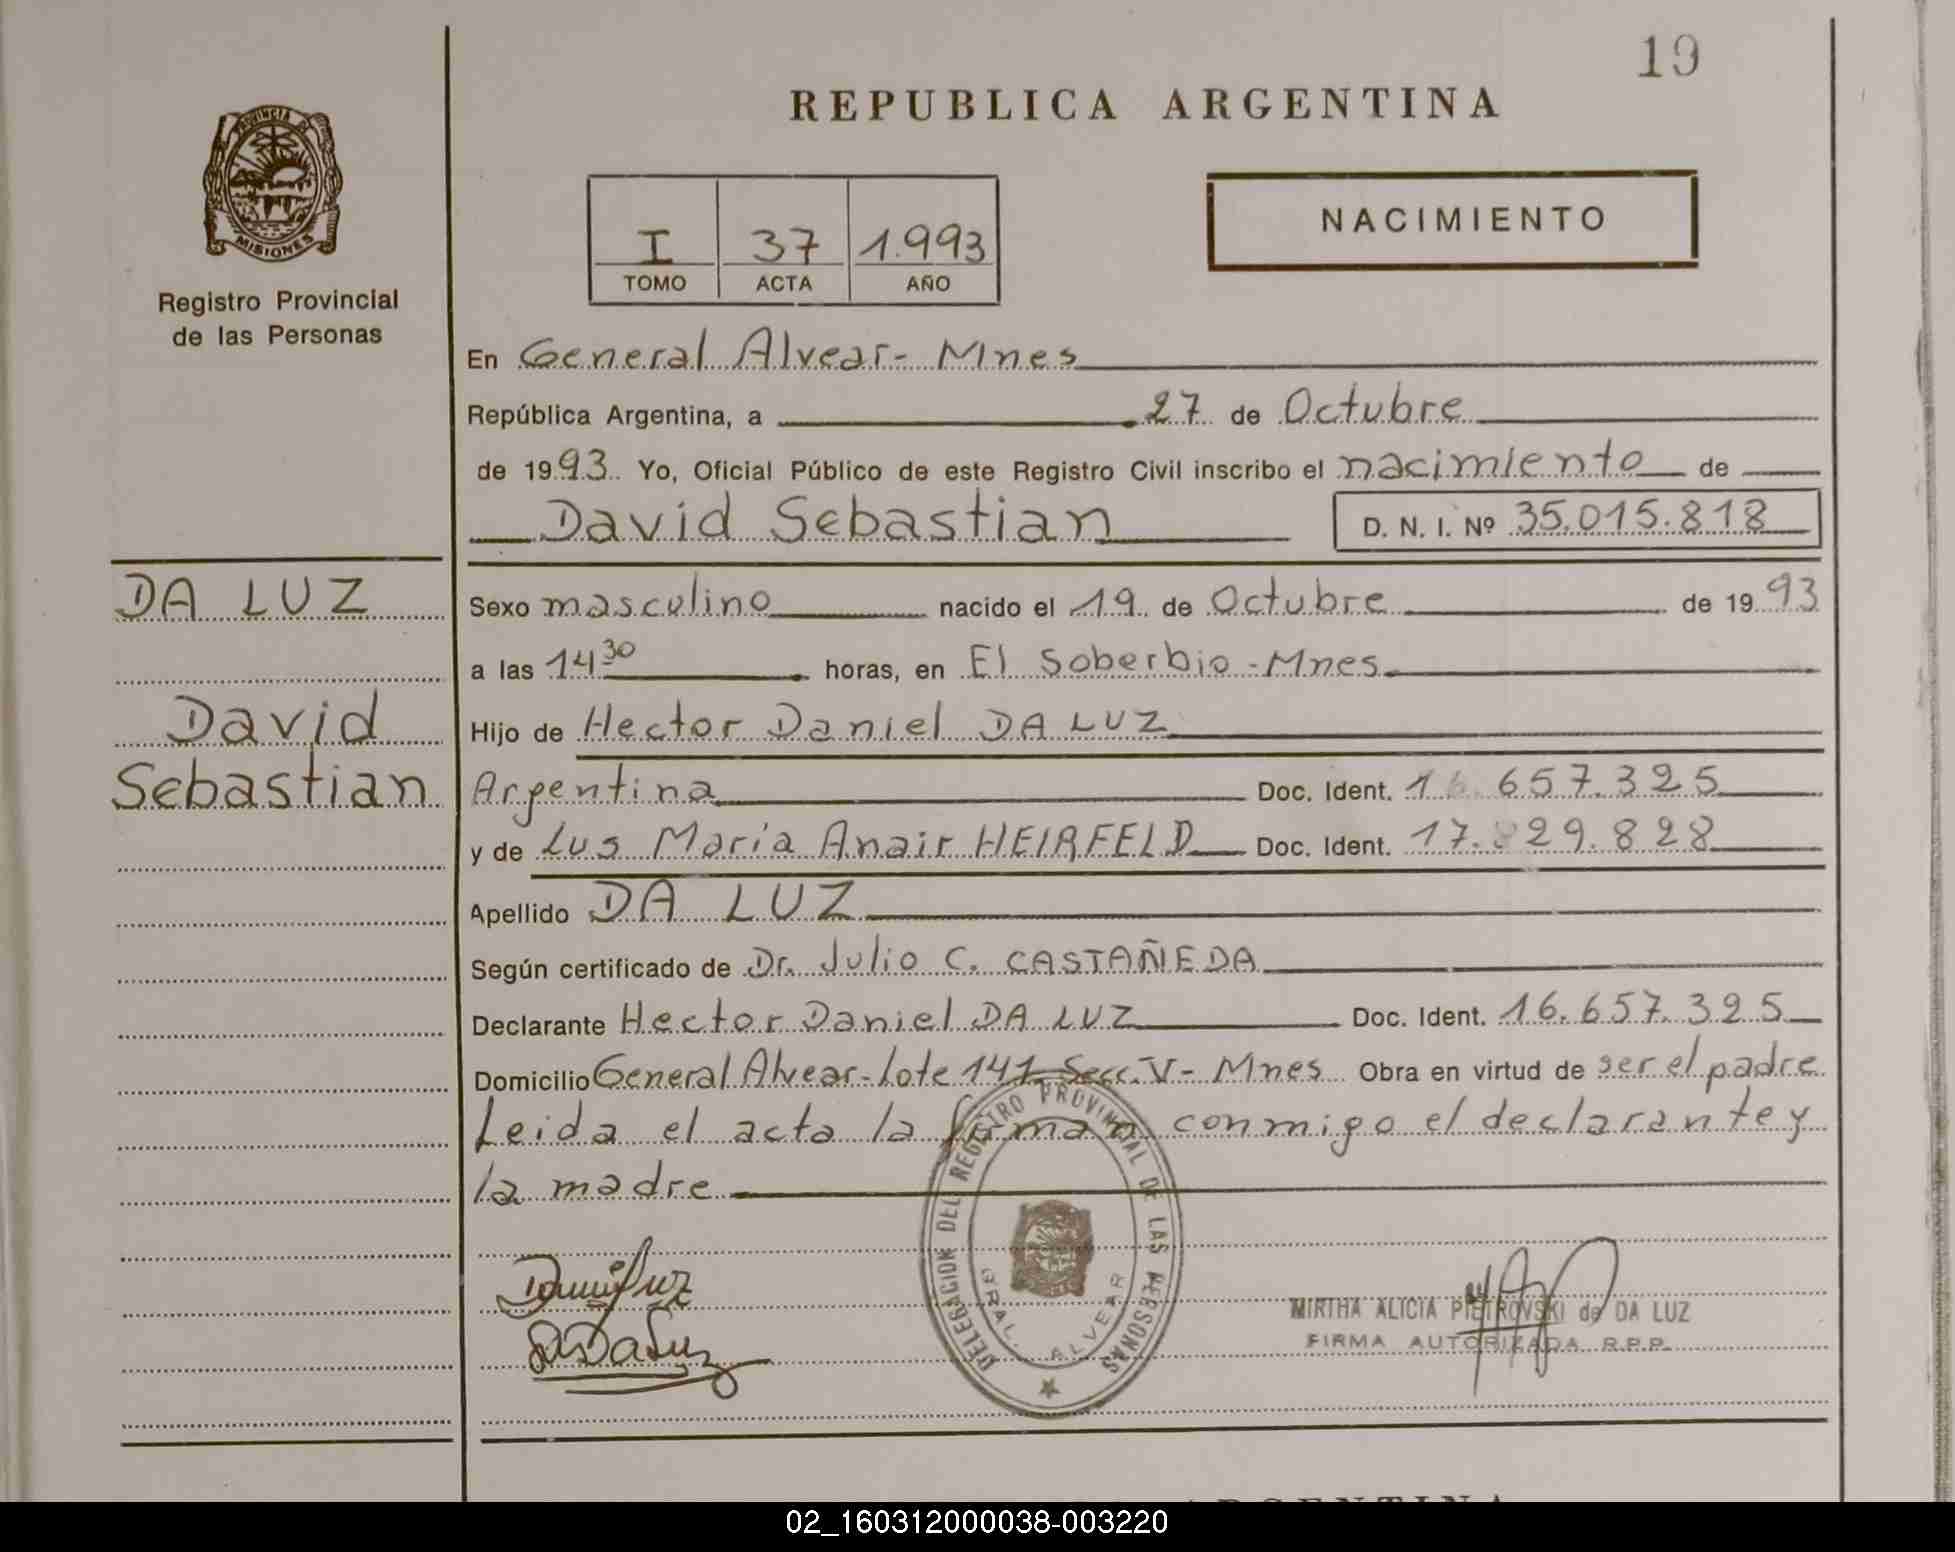 19
REPUBLICA ARGENTINA
PROVINCIA DE
MISIONES
Registro Provincial
de las Personas
I 37 1.993
TOMO ACTA AÑO
NACIMIENTO
En General Alvear- Mnes
República Argentina, a 27 de Octubre
de 1993 Yo, Oficial Público de este Registro Civil inscribo el nacimiento de
David Sebastian D. N. I. Nº 35.015.818
DA LUZ
David
Sebastian
Sexo masculino nacido el 19 de Octubre de 1993
a las 14 30 horas, en El Soberbio - Mnes.
Hijo de Hector Daniel DA LUZ
Argentina Doc. Ident. 16.657.325
y de Lus Maria Anair HEIRFELD Doc. Ident. 17.829.828
Apellido DA LUZ
Según certificado de Dr. Julio C. CASTAÑEDA
Declarante Hector Daniel DA LUZ Doc. Ident. 16.657.325
Domicilio General Alvear-lote 141 Secc. V- Mnes Obra en virtud de ser el padre
Leida el acta la firman conmigo el declarante y
la madre
DELEGACION DEL REGISTRO PROVINCIAL DE LAS PERSONAS
GRAL. ALVEAR
MIRTHA ALICIA PIETROVSKI de DA LUZ
FIRMA AUTORIZADA R.P.P.
02_160312000038-003220